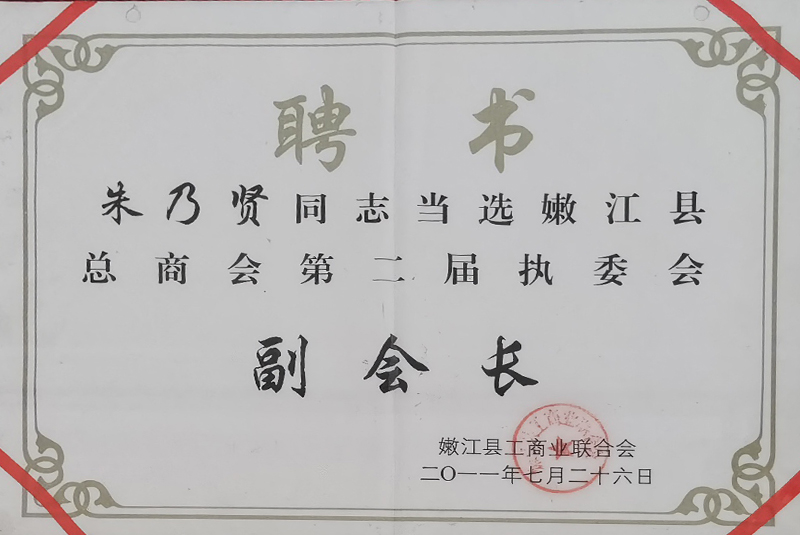 聘书
朱乃贤同志当选嫩江县
总商会第二届执委会
副会长
嫩江县工商业联合会
二〇一一年七月二十六日